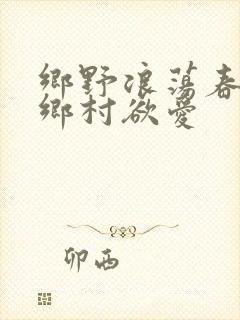 鄉野浪蕩春
鄉村欲愛
卯西